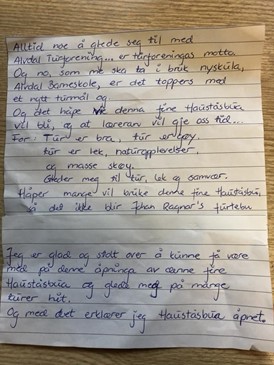 Alltid noe å glede seg til med
Alvdal Turforening... er turforeningas motto
Og no, som me ska ta i bruk nyskula,
Alvdal Barneskole, er det toppers med
et nytt turmål og
Og det håpe denne fine Hauståsbua
vil bli, og at læreran vil gje oss tid...
For: Tur er bra, tur er gøy.
tur er lek, naturopplevelser,
og masse skøy.
Gleder meg til tur, lek og samvær.
Håper mange vil bruke denne fine Hauståsbua,
så det ikke blir Johan Ragnar's furtebu
Jeg er glad og stolt over å kunne få være
med på denne åpninga av denne fine
Hauståsbua og glede meg på mange
turer hit.
Og med det erklærer jeg Hauståsbua åpnet.